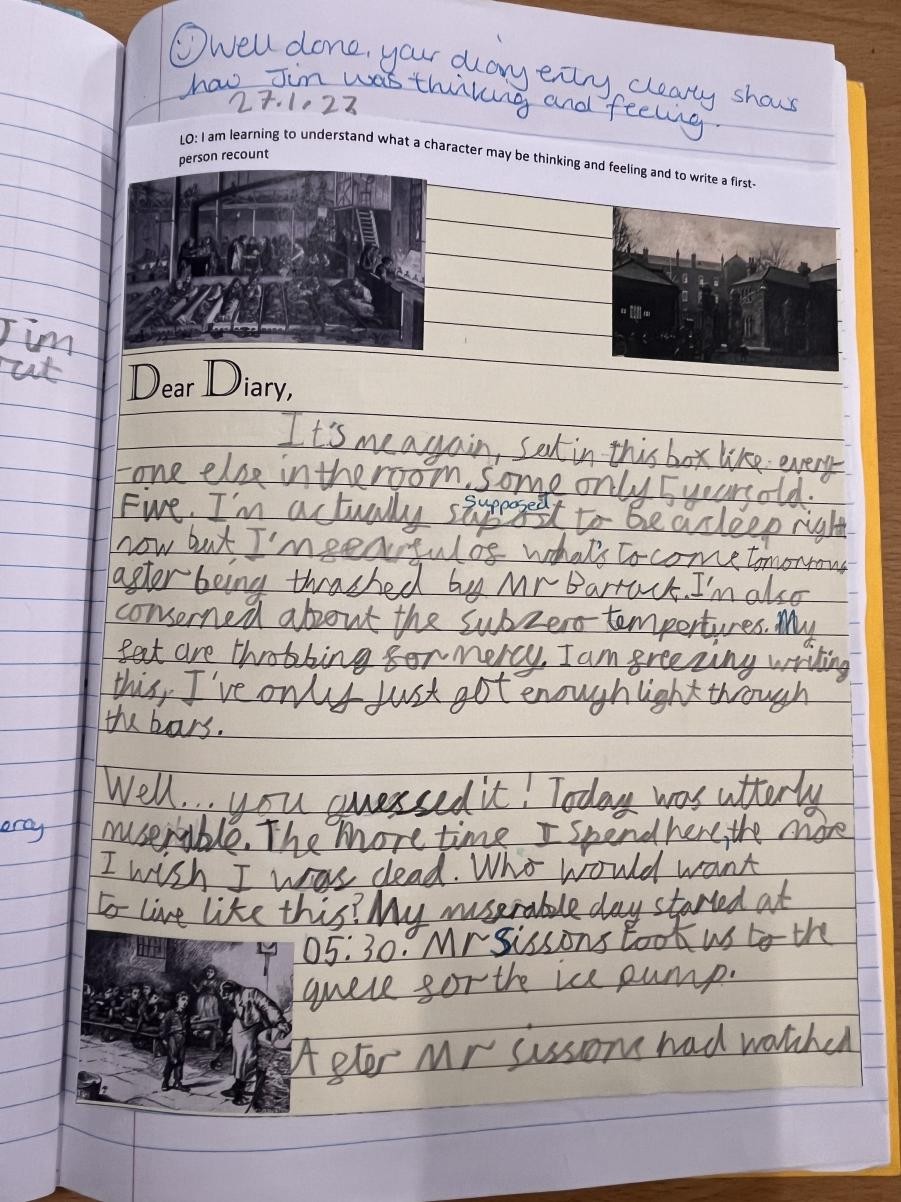 ☺ Well done, your diary entry clearly shows
how Jim was thinking and feeling.
27.1.23
LO: I am learning to understand what a character may be thinking and feeling and to write a first-
person recount
Jim
Dear Diary,
It's me again, sat in this box like every-
-one else in the room. Some only 5 years old.
Five. I'm actually sapost supposed to be asleep right
now but I'm fearful of what's to come tomorrow
after being thrashed by Mr Barrack. I'm also
conserned about the subzero tempertures. My
feat are throbbing for mercy. I am freezing writing
this, I've only just got enough light through
the bars.
Well... you guessed it! Today was utterly
miserable. The more time I spend here, the more
I wish I was dead. Who would want
to live like this? My miserable day started at
05:30. Mr Sissons took us to the
queue for the ice pump.
After Mr sissons had watched